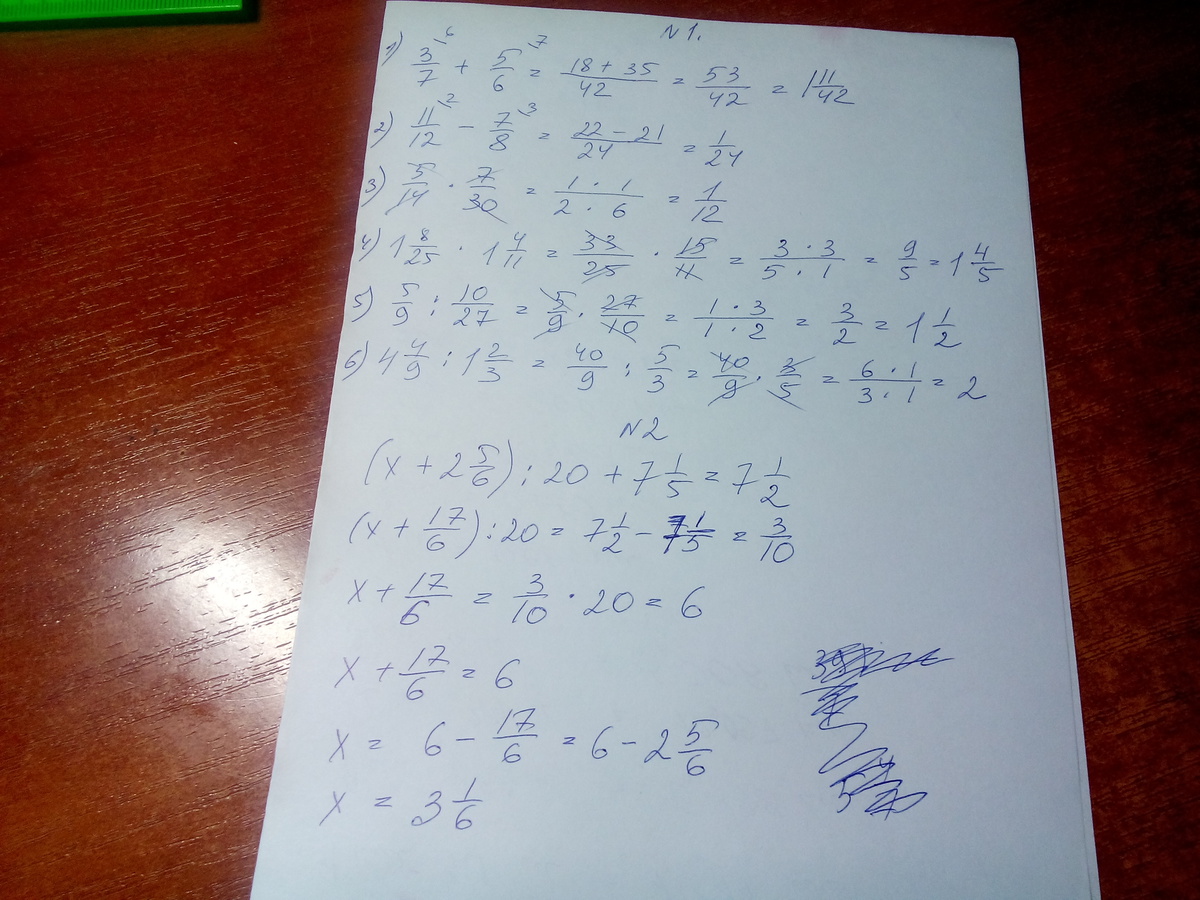 N1.
1) 3/7 \6 + 5/6 \7 = (18 + 35)/42 = 53/42 = 1 11/42
2) 11/12 \2 - 7/8 \3 = (22 - 21)/24 = 1/24
3) 5/14 · 7/30 = (1 · 1)/(2 · 6) = 1/12
4) 1 8/25 · 1 4/11 = 33/25 · 15/11 = (3 · 3)/(5 · 1) = 9/5 = 1 4/5
5) 5/9 : 10/27 = 5/9 · 27/10 = (1 · 3)/(1 · 2) = 3/2 = 1 1/2
6) 4 4/9 : 1 2/3 = 40/9 : 5/3 = 40/9 · 3/5 = (6 · 1)/(3 · 1) = 2
N2
(x + 2 5/6) : 20 + 7 1/5 = 7 1/2
(x + 17/6) : 20 = 7 1/2 - 7 1/5 = 3/10
x + 17/6 = 3/10 · 20 = 6
x + 17/6 = 6
x = 6 - 17/6 = 6 - 2 5/6
x = 3 1/6